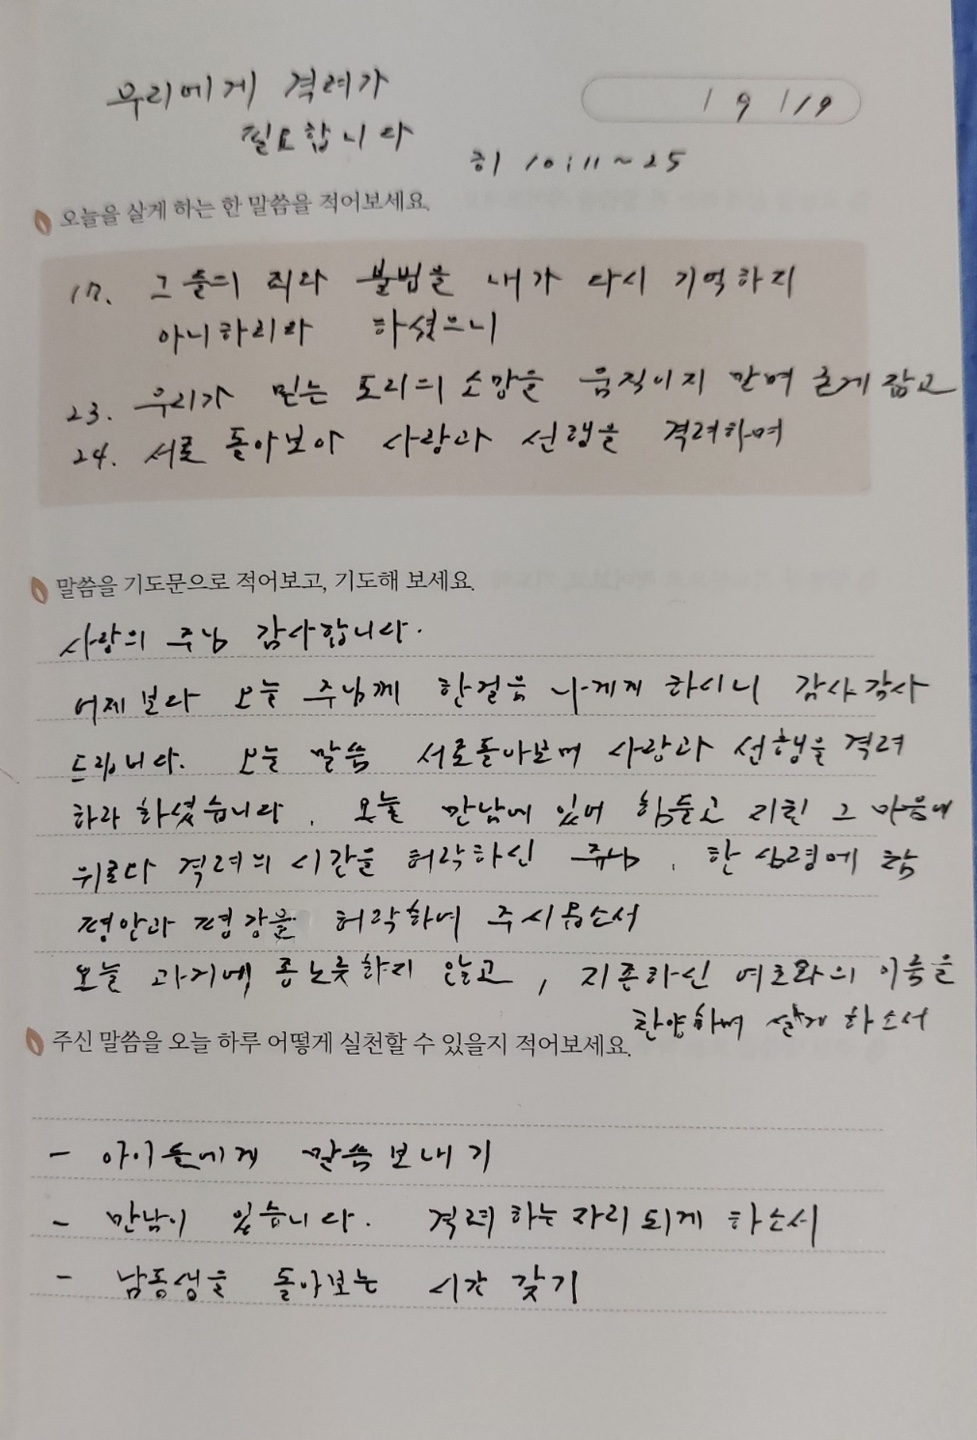 우리에게 격려가
필요합니다
19 1/19
히 10:11~25
오늘을 살게 하는 한 말씀을 적어보세요.
17. 그들의 죄와 불법을 내가 다시 기억하지
아니하리라 하셨으니
23. 우리가 믿는 도리의 소망을 움직이지 말며 굳게 잡고
24. 서로 돌아보아 사랑과 선행을 격려하며
말씀을 기도문으로 적어보고, 기도해 보세요.
사랑의 주님 감사합니다.
어제보다 오늘 주님께 한걸음 나가게 하시니 감사감사
드립니다. 오늘 말씀 서로돌아보며 사랑과 선행을 격려
하라 하셨습니다. 오늘 만남에 있어 힘들고 지친 그 마음에
위로다 격려의 시간을 허락하신 주님, 한 심령에 참
평안과 평강을 허락하여 주시옵소서
오늘 과거에 종노릇하지 않고, 지존하신 여호와의 이름을
찬양하며 살게 하소서
주신 말씀을 오늘 하루 어떻게 실천할 수 있을지 적어보세요.
- 아이들에게 말씀보내기
- 만남이 있습니다. 격려하는자리되게 하소서
- 남동생을 돌아보는 시간 갖기